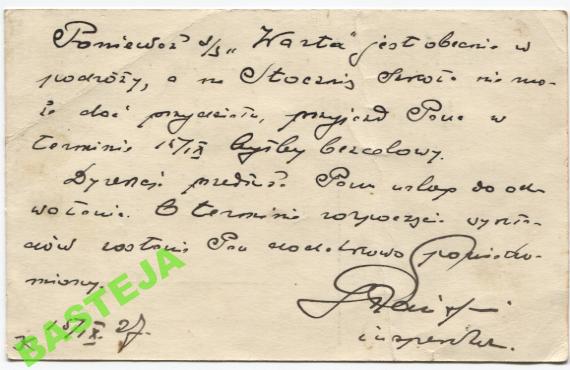 Ponieważ s/s „Warta" jest obecnie w
podróży, a na Stocznię Szkoła nie mo-
że dać przydziału, przyjazd Pana w
terminie 15/IX byłby bezcelowy.
Dyrekcja przedłuża Panu urlop do od-
wołania. O terminie rozpoczęcia wykła-
dów zostanie Pan dodatkowo powiado-
miony.
5/IX. 27.
inspektor.
BASTEJA